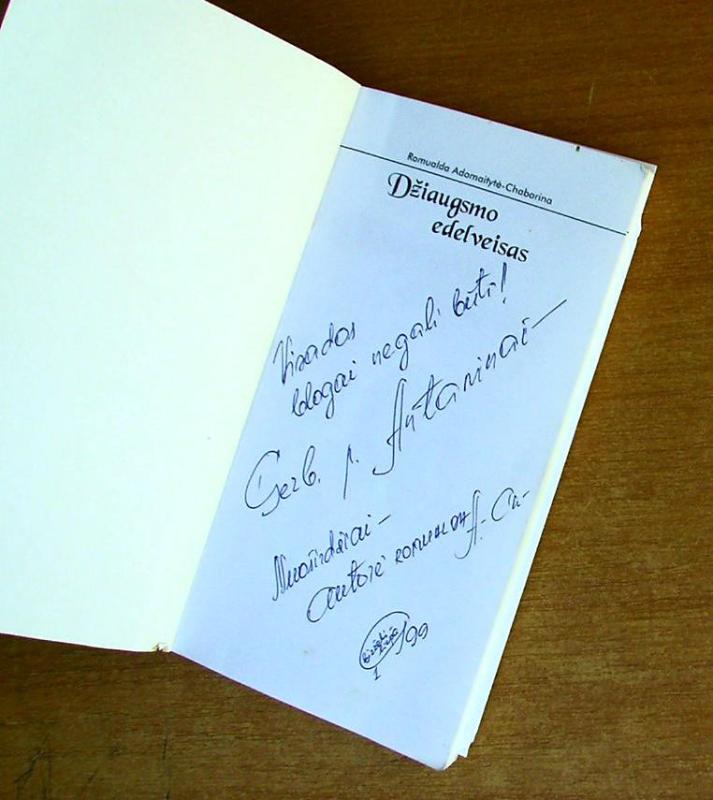 Romualda Adomaitytė-Chabarina
Džiaugsmo
edelveisas
Visados
blogai negali būti!
Gerb. p. Antaninai –
Nuoširdžiai –
autorė A-Ch-
1 99